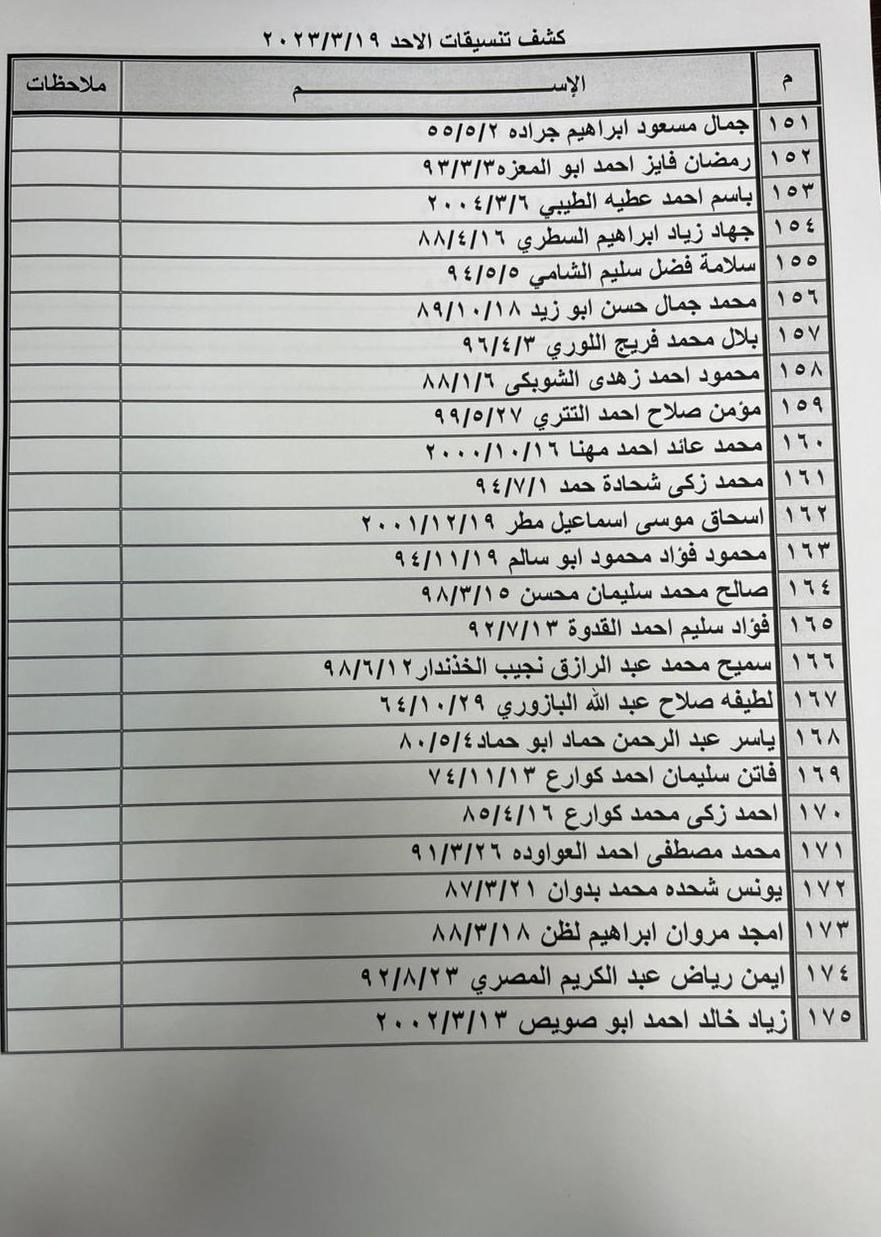 كشف تنسيقات الاحد ٢٠٢٣/٣/١٩
م الإســــــــــــم ملاحظات
١٥١ جمال مسعود ابراهيم جراده ٥٥/٥/٢
١٥٢ رمضان فايز احمد ابو المعزه٩٣/٣/٣
١٥٣ باسم احمد عطيه الطيبي ٢٠٠٤/٣/٦
١٥٤ جهاد زياد ابراهيم السطري ٨٨/٤/١٦
١٥٥ سلامة فضل سليم الشامي ٩٤/٥/٥
١٥٦ محمد جمال حسن ابو زيد ٨٩/١٠/١٨
١٥٧ بلال محمد فريج اللوري ٩٦/٤/٣
١٥٨ محمود احمد زهدى الشوبكى ٨٨/١/٦
١٥٩ مؤمن صلاح احمد التتري ٩٩/٥/٢٧
١٦٠ محمد عائد احمد مهنا ٢٠٠٠/١٠/١٦
١٦١ محمد زكى شحادة حمد ٩٤/٧/١
١٦٢ اسحاق موسى اسماعيل مطر ٢٠٠١/١٢/١٩
١٦٣ محمود فؤاد محمود ابو سالم ٩٤/١١/١٩
١٦٤ صالح محمد سليمان محسن ٩٨/٣/١٥
١٦٥ فؤاد سليم احمد القدوة ٩٢/٧/١٣
١٦٦ سميح محمد عبد الرازق نجيب الخذندار٩٨/٦/١٢
١٦٧ لطيفه صلاح عبد الله البازوري ٦٤/١٠/٢٩
١٦٨ ياسر عبد الرحمن حماد ابو حماد٨٠/٥/٤
١٦٩ فاتن سليمان احمد كوارع ٧٤/١١/١٣
١٧٠ احمد زكى محمد كوارع ٨٥/٤/١٦
١٧١ محمد مصطفى احمد العواوده ٩١/٣/٢٦
١٧٢ يونس شحده محمد بدوان ٨٧/٣/٢١
١٧٣ امجد مروان ابراهيم لظن ٨٨/٣/١٨
١٧٤ ايمن رياض عبد الكريم المصري ٩٢/٨/٢٣
١٧٥ زياد خالد احمد ابو صويص ٢٠٠٢/٣/١٣